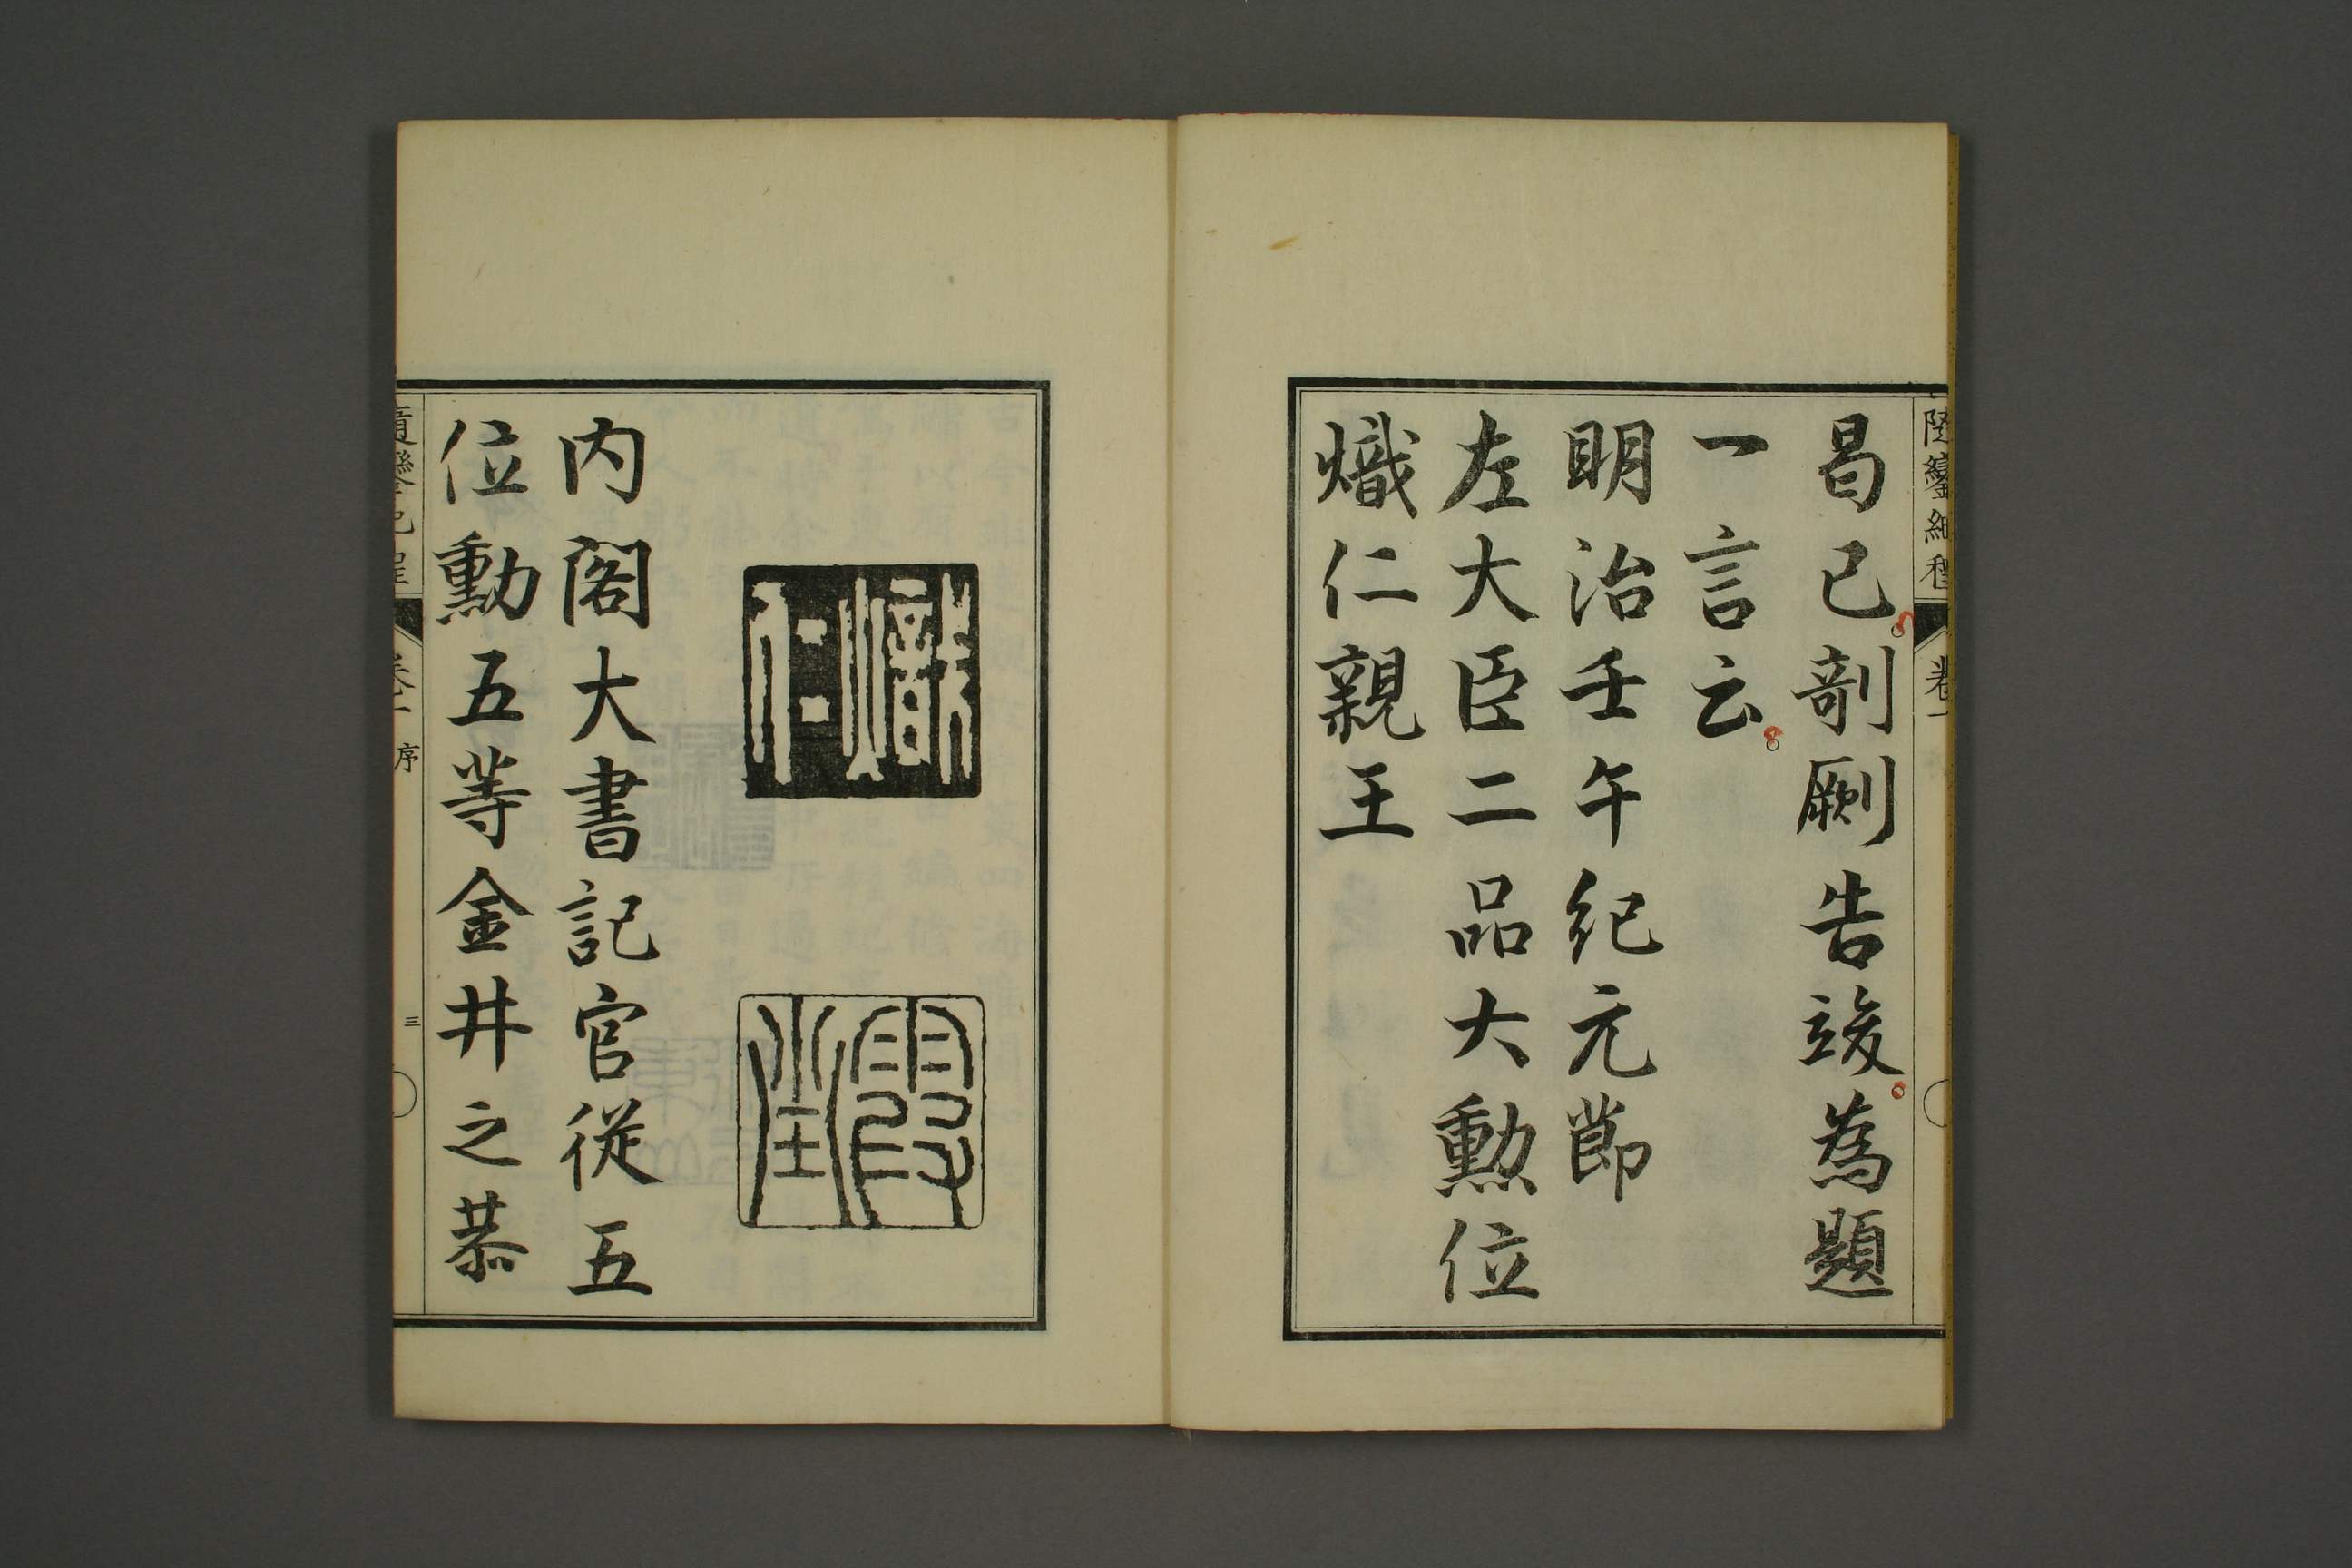 曷已剞劂告竣為題
一言云
明治壬午紀元節
左大臣二品大勲位
熾仁親王
隨鑾紀程
卷一
熾仁
霞堂
内閣大書記官從五
位勳五等金井之恭
隨鑾紀程
卷一
序
三